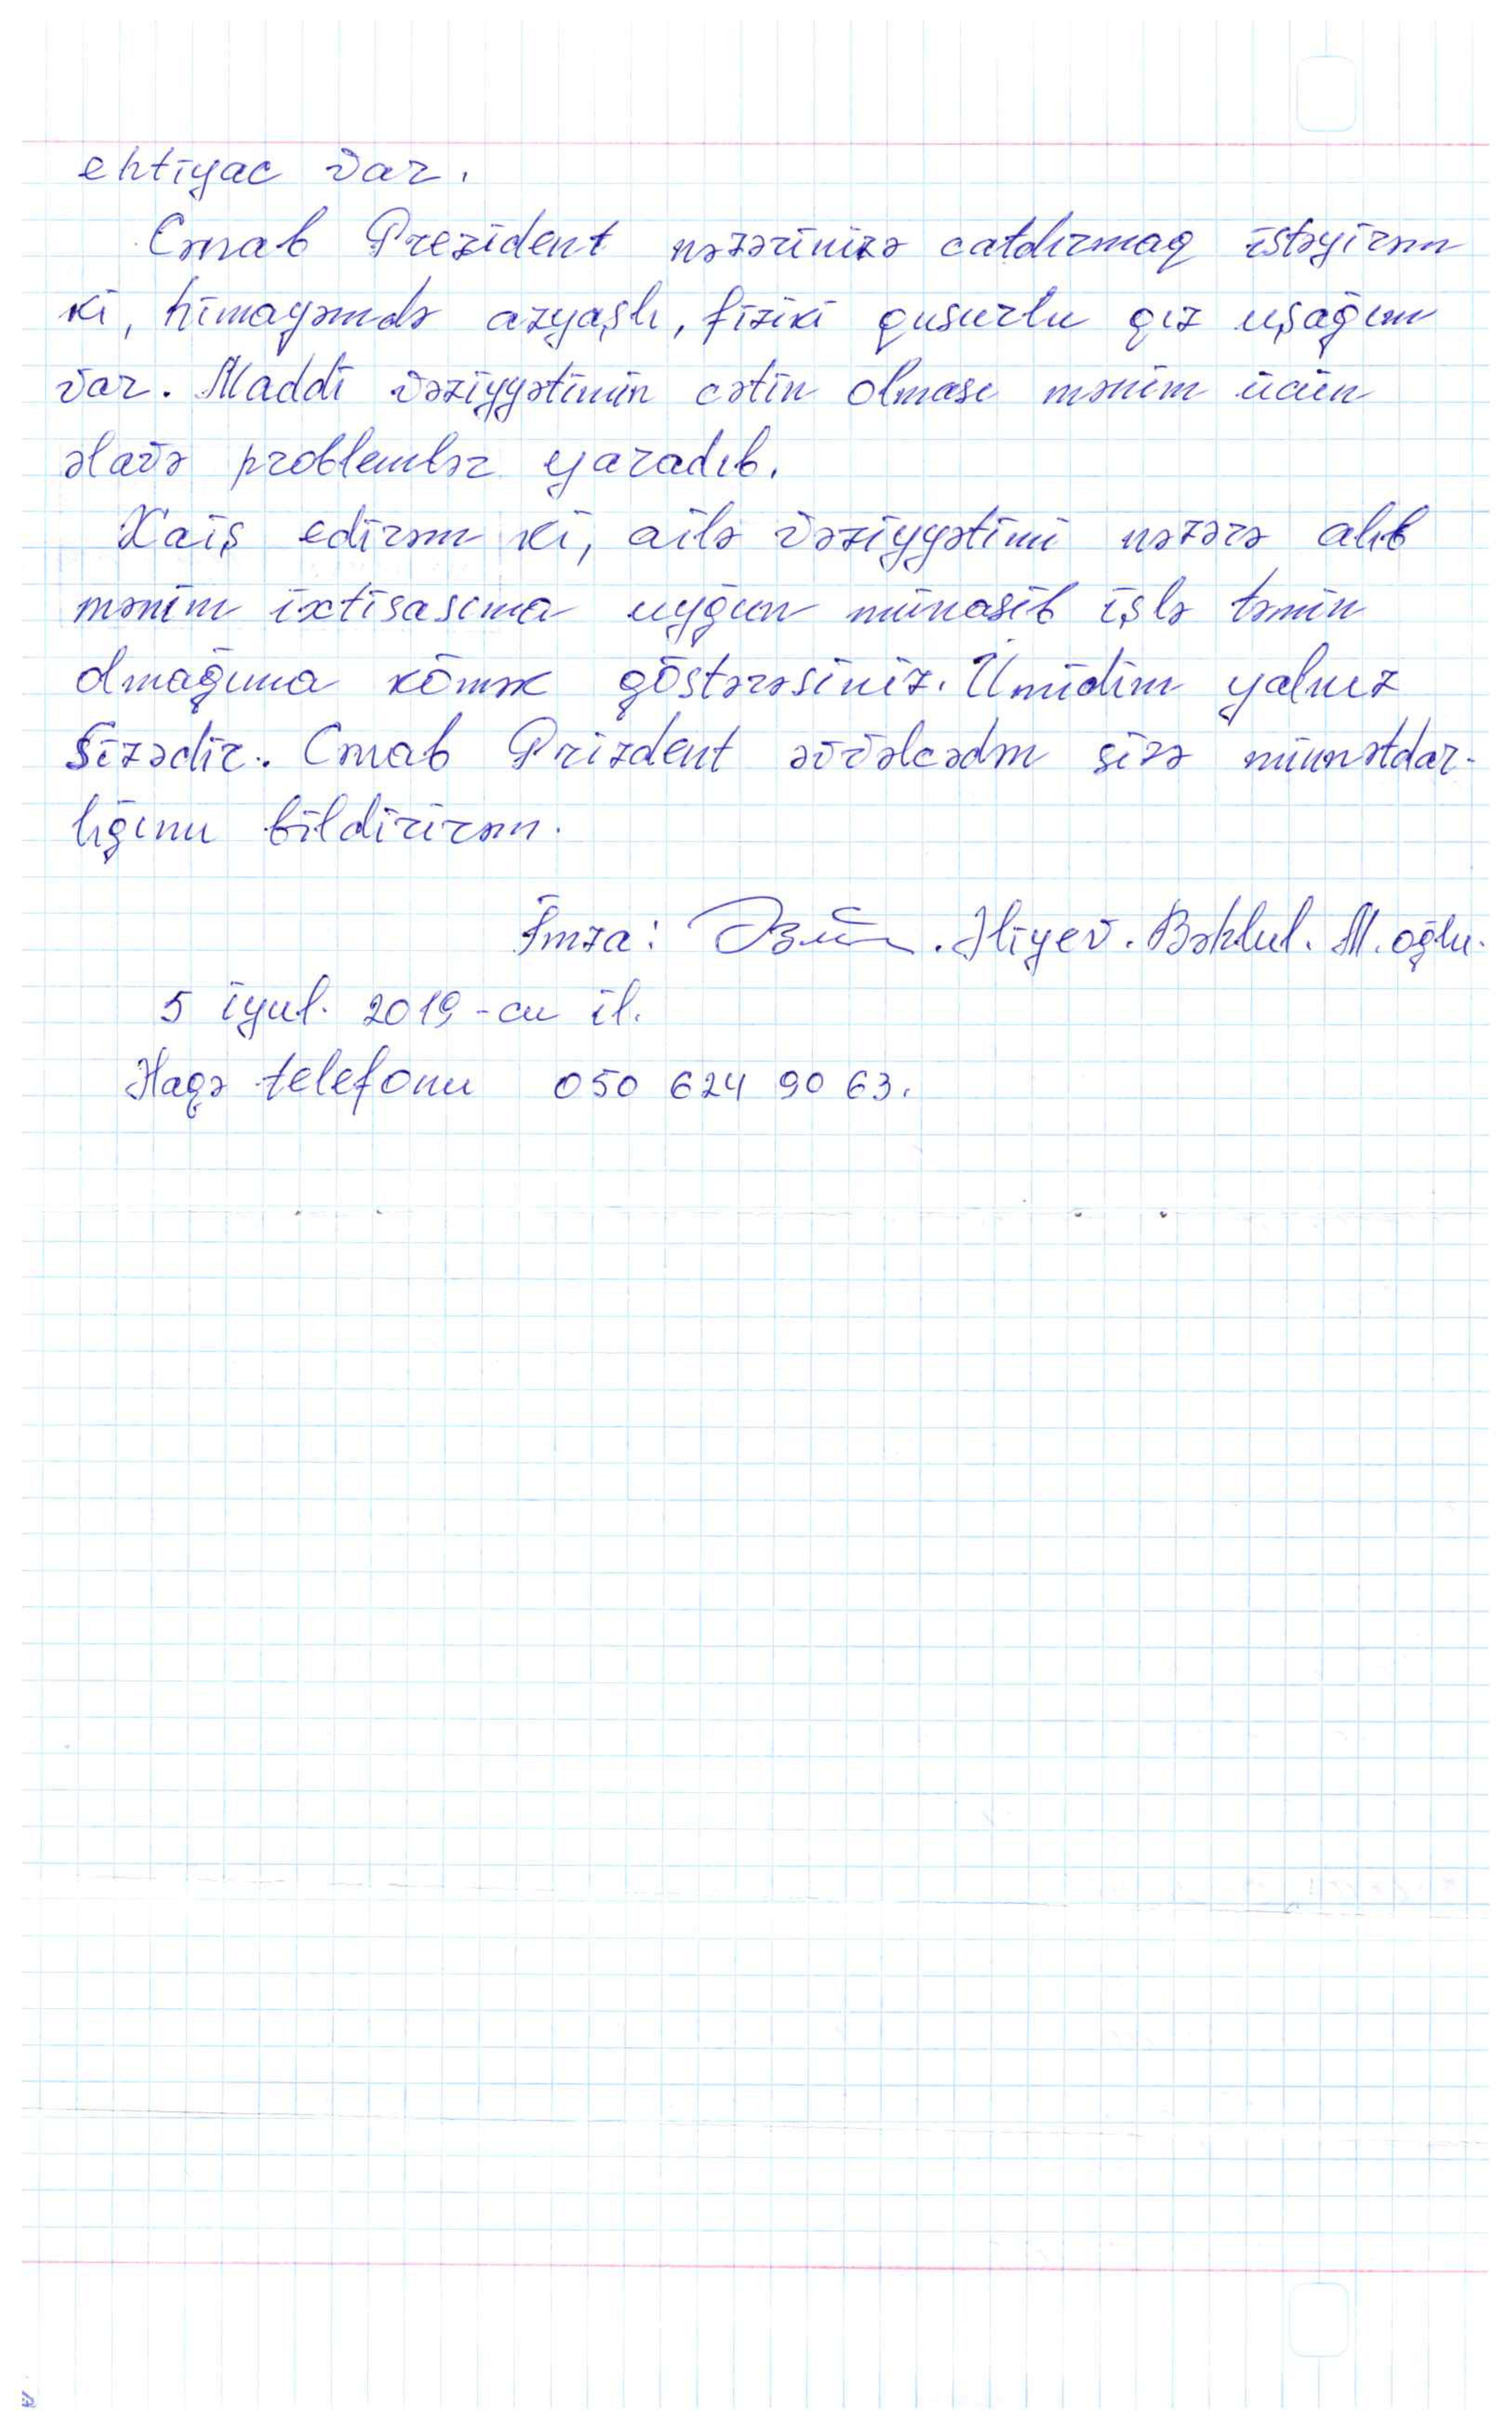 ehtiyac var.
Cənab Prezident nəzərinizə catdırmaq istəyirəm
ki, himayəmdə azyaşlı, fiziki qusurlu qız uşağım
var. Maddi vəziyyətimin cətin olması mənim ücün
əlavə problemlər yaradıb.
Xaiş edirəm ki, ailə vəziyyətimi nəzərə alıb
mənim ixtisasıma uyğun münasib işlə təmin
olmağıma kömək göstərəsiniz. Ümidim yalnız
Sizədir. Cənab Prizdent əvvəlcədən sizə minnətdar-
lığımı bildirirəm.
İmza: Əliyev. Bəhlul. M. oğlu.
5 iyul. 2019-cu il.
Əlaqə telefonu 050 624 90 63.